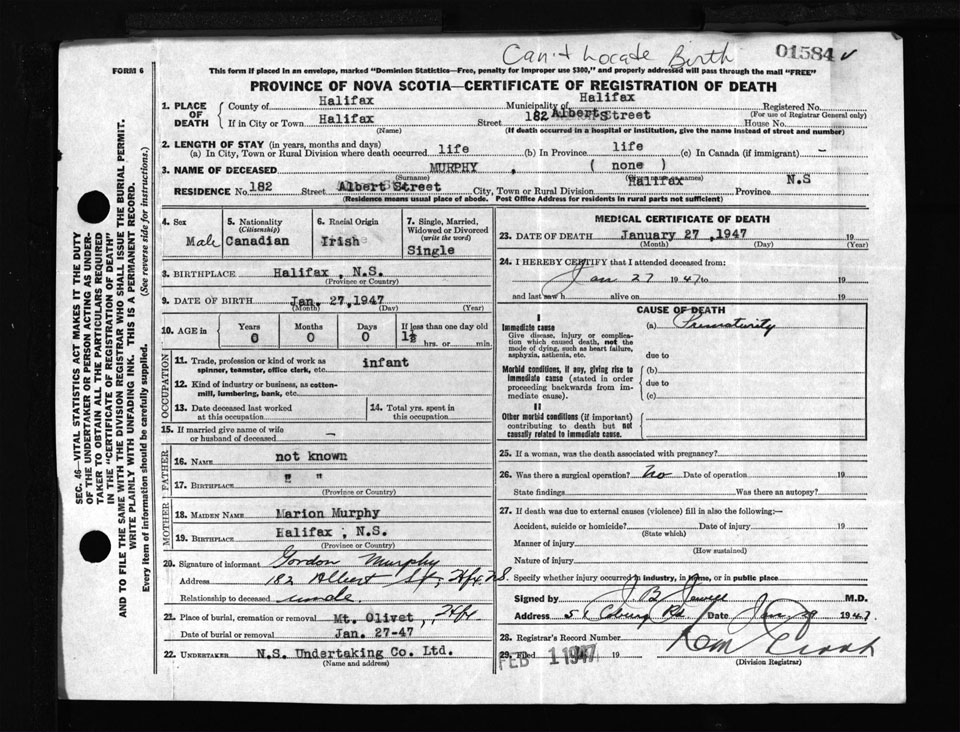 Can't Locate Birth
01584
FORM 6
This form if placed in an envelope, marked "Dominion Statistics—Free, penalty for improper use $300," and properly addressed will pass through the mail "FREE"
PROVINCE OF NOVA SCOTIA—CERTIFICATE OF REGISTRATION OF DEATH
1. PLACE OF DEATH
County of Halifax Municipality of Halifax Registered No.
(For use of Registrar General only)
If in City or Town Halifax Street 182 Albert Street House No.
(Name) (If death occurred in a hospital or institution, give the name instead of street and number)
2. LENGTH OF STAY (in years, months and days)
(a) In City, Town or Rural Division where death occurred life (b) In Province life (c) In Canada (if immigrant) -
3. NAME OF DECEASED MURPHY , ( none )
(Surname) (Given names)
RESIDENCE No. 182 Street Albert Street City, Town or Rural Division Halifax Province N.S
(Residence means usual place of abode. Post Office Address for residents in rural parts not sufficient)
4. Sex Male
5. Nationality (Citizenship) Canadian
6. Racial Origin Irish
7. Single, Married, Widowed or Divorced (write the word) Single
8. BIRTHPLACE Halifax , N.S.
(Province or Country)
9. DATE OF BIRTH Jan. 27,1947
(Month) (Day) (Year)
10. AGE in Years 0 Months 0 Days 0 If less than one day old 1½ hrs. or min.
OCCUPATION
11. Trade, profession or kind of work as spinner, teamster, office clerk, etc. infant
12. Kind of industry or business, as cotton-mill, lumbering, bank, etc.
13. Date deceased last worked at this occupation
14. Total yrs. spent in this occupation
15. If married give name of wife or husband of deceased -
FATHER
16. NAME not known
17. BIRTHPLACE " "
(Province or Country)
MOTHER
18. MAIDEN NAME Marion Murphy
19. BIRTHPLACE Halifax , N.S.
(Province or Country)
20. Signature of informant Gordon Murphy
Address 182 Albert St, Hfx. N.S.
Relationship to deceased uncle.
21. Place of burial, cremation or removal Mt. Olivet, Hfx
Date of burial or removal Jan. 27-47
22. UNDERTAKER N.S. Undertaking Co. Ltd.
(Name and address)
MEDICAL CERTIFICATE OF DEATH
23. DATE OF DEATH January 27 ,1947 19
(Month) (Day) (Year)
24. I HEREBY CERTIFY that I attended deceased from:
Jan 27 1947 to 19
and last saw h alive on 19
CAUSE OF DEATH
I
Immediate cause (a) Prematurity
Give disease, injury or complication which caused death, not the mode of dying, such as heart failure, asphyxia, asthenia, etc. due to
Morbid conditions, if any, giving rise to immediate cause (stated in order proceeding backwards from immediate cause). (b)
due to
(c)
II
Other morbid conditions (if important) contributing to death but not causally related to immediate cause.
25. If a woman, was the death associated with pregnancy?
26. Was there a surgical operation? No Date of operation 19
State findings Was there an autopsy?
27. If death was due to external causes (violence) fill in also the following:—
Accident, suicide or homicide? Date of injury 19
(State which)
Manner of injury
(How sustained)
Nature of injury
Specify whether injury occurred in industry, in home, or in public place
Signed by M.D.
Address Coburg Rd Date Jan 29 1947
28. Registrar's Record Number
29. Filed FEB 1 1947 19
(Division Registrar)
SEC. 46—VITAL STATISTICS ACT MAKES IT THE DUTY
OF THE UNDERTAKER OR PERSON ACTING AS UNDER-
TAKER TO OBTAIN ALL THE PARTICULARS REQUIRED
IN THE "CERTIFICATE OF REGISTRATION OF DEATH"
AND TO FILE THE SAME WITH THE DIVISION REGISTRAR WHO SHALL ISSUE THE BURIAL PERMIT.
WRITE PLAINLY WITH UNFADING INK. THIS IS A PERMANENT RECORD.
Every item of information should be carefully supplied. (See reverse side for instructions.)